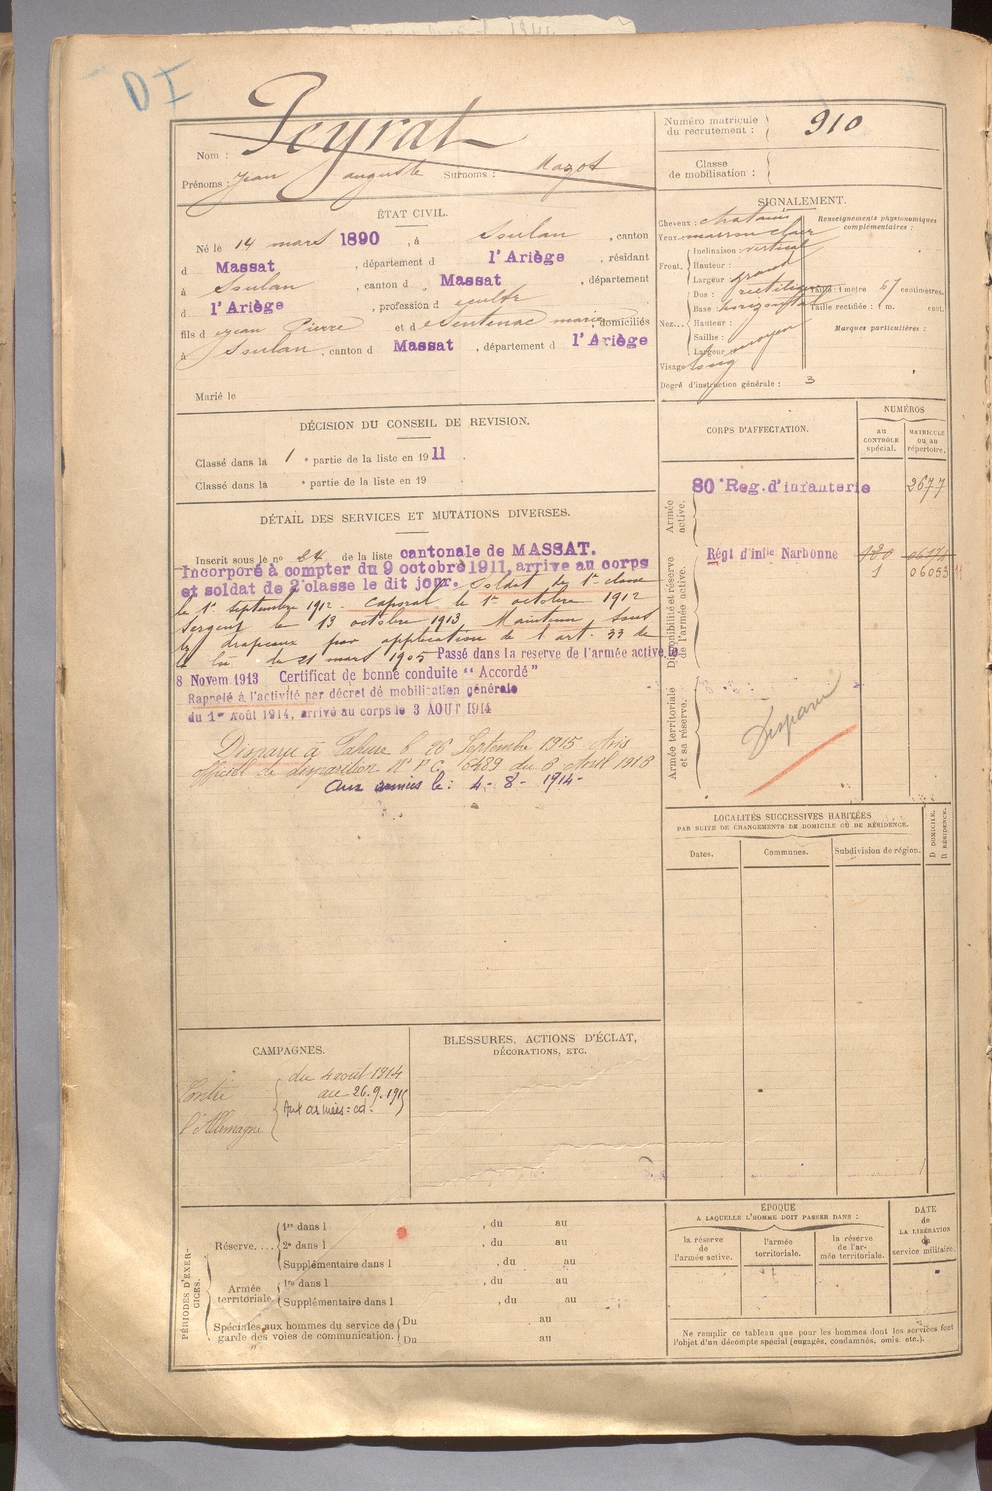 DI
Nom : Peyrat
Prénoms : Jean auguste Surnoms : Mazot
Numéro matricule du recrutement : 910
Classe de mobilisation :
ÉTAT CIVIL.
Né le 14 mars 1890, à Soulan, canton
d Massat, département d l'Ariège, résidant
à Soulan, canton d Massat, département
d l'Ariège, profession d cultr
fils d Jean Pierre et d Sentenac marie, domiciliés
à Soulan, canton d Massat, département d l'Ariège
Marié le
SIGNALEMENT.
Cheveux : chatain
Yeux : marron clair
Front. Inclinaison : vertical
Hauteur :
Largeur : grand
Nez... Dos : rectiligne
Base : horizontal
Hauteur :
Saillie :
Largeur : moyen
Visage : long
Renseignements physionomiques complémentaires :
Taille : 1 mètre 67 centimètres.
Taille rectifiée : 1 m. cent.
Marques particulières :
Degré d'instruction générale : 3
DÉCISION DU CONSEIL DE REVISION.
Classé dans la 1 e partie de la liste en 1911.
Classé dans la e partie de la liste en 19 .
CORPS D'AFFECTATION.
NUMÉROS
au contrôle spécial.
MATRICULE ou au répertoire.
Armée active.
80e Reg. d'infanterie 2677
Disponibilité et réserve de l'armée active.
Régt d'infie Narbonne
1 06053
Armée territoriale et sa réserve.
Disparu
DÉTAIL DES SERVICES ET MUTATIONS DIVERSES.
Inscrit sous le no 24 de la liste cantonale de MASSAT.
Incorporé à compter du 9 octobre 1911, arrive au corps
et soldat de 2e classe le dit jour. Soldat de 1re classe
le 1er septembre 1912. Caporal le 1er octobre 1912
Sergent le 13 octobre 1913 Maintenu sous
les drapeaux par application de l'art. 33 de
la loi du 21 mars 1905 Passé dans la reserve de l'armée active le
8 Novem 1913 Certificat de bonne conduite "Accordé"
Rappelé à l'activité par décret dé mobilisation générale
du 1er Août 1914, arrivé au corps le 3 AOUT 1914
Disparu à Tahure le 26 Septembre 1915 Avis
officiel de disparition No P.C. 6489 du 8 Avril 1916
Aux armées le : 4-8-1914-
LOCALITÉS SUCCESSIVES HABITÉES
PAR SUITE DE CHANGEMENTS DE DOMICILE OU DE RÉSIDENCE.
Dates.
Communes.
Subdivision de région.
D DOMICILE.
R RÉSIDENCE.
CAMPAGNES.
Contre l'Allemagne
du 4 aout 1914
au 26.9.1915
Aux armées : cd.
BLESSURES, ACTIONS D'ÉCLAT,
DÉCORATIONS, ETC.
PÉRIODES D'EXERCICES.
Réserve.... 1re dans l , du au
2e dans l , du au
Supplémentaire dans l , du au
Armée territoriale 1re dans l , du au
Supplémentaire dans l , du au
Spéciales aux hommes du service de garde des voies de communication. Du au
Du au
ÉPOQUE
A LAQUELLE L'HOMME DOIT PASSER DANS :
la réserve de l'armée active.
l'armée territoriale.
la réserve de l'armée territoriale.
DATE de LA LIBÉRATION du service militaire.
Ne remplir ce tableau que pour les hommes dont les services font
l'objet d'un décompte spécial (engagés, condamnés, omis, etc.).